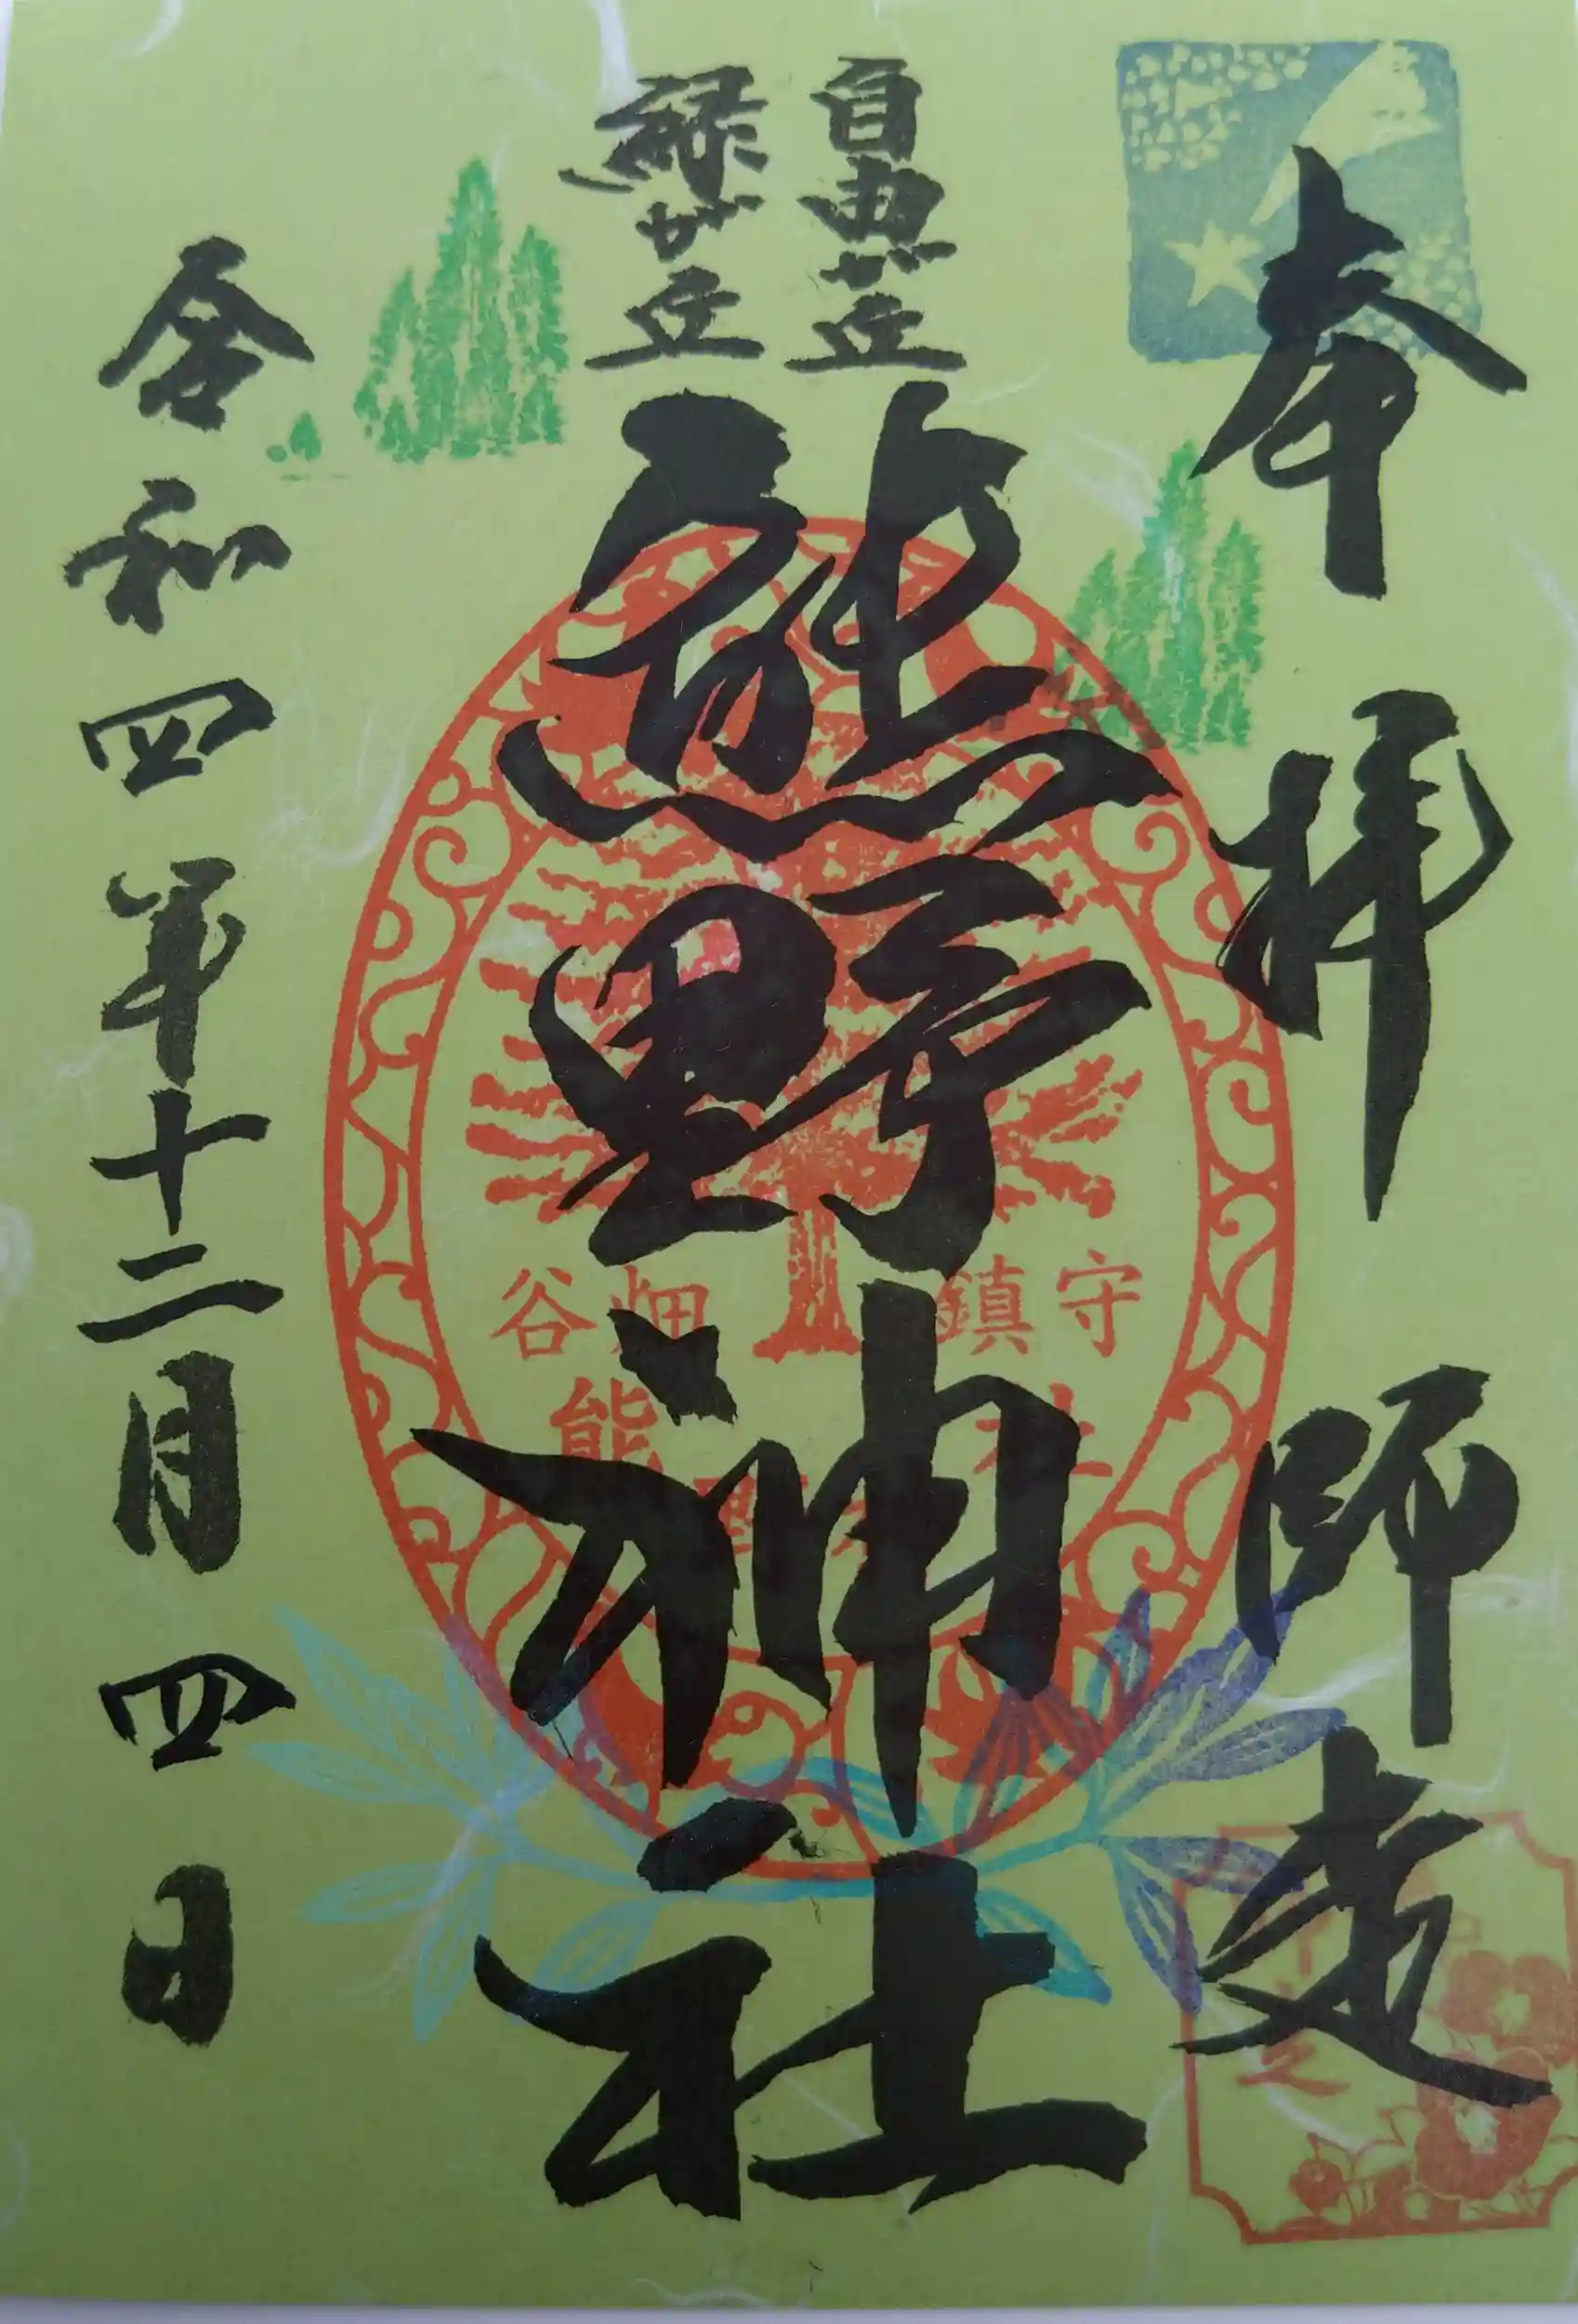 奉拝 師走
自由が丘
緑が丘
熊野神社
令和四年十二月四日
鎮守
谷畑
熊
社